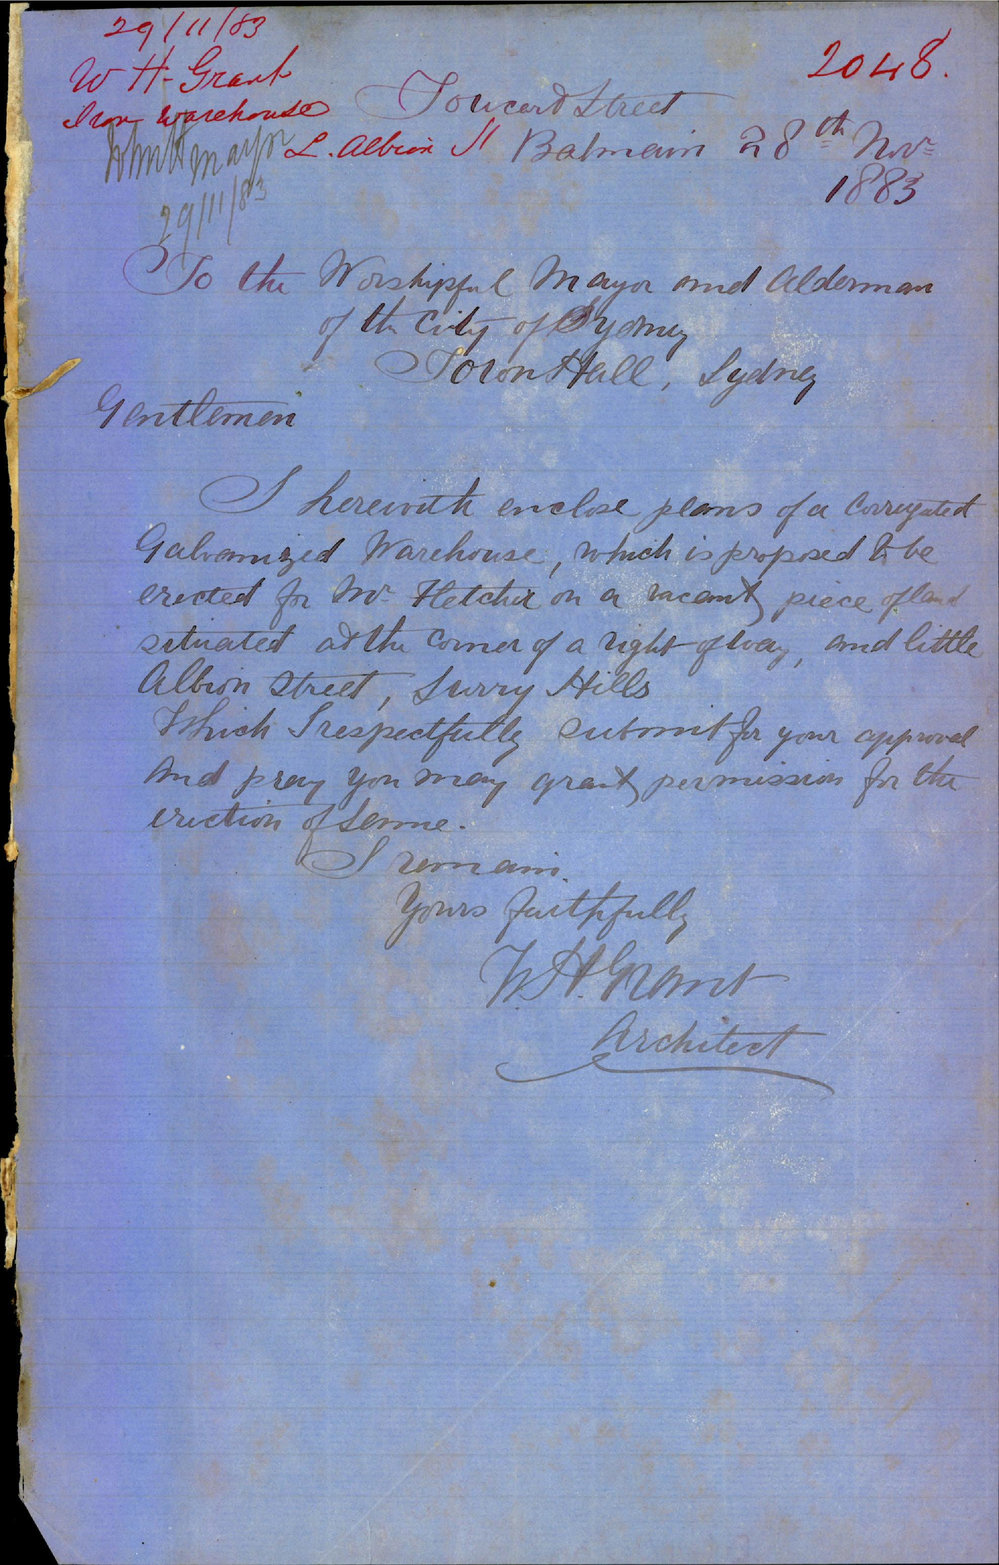 29/11/83
W H Grant
Iron Warehouse
L. Albion St
2048.
Mayor
29/11/83
Street
Balmain 28th Nov
1883
To the Worshipful Mayor and Alderman
of the City of Sydney
Town Hall, Sydney
Gentlemen
I herewith enclose plans of a Corrugated
Galvanized Warehouse, which is proposed to be
erected for Mr Fletcher on a vacant piece of land
situated at the corner of a right of way, and little
Albion Street, Surry Hills
Which I respectfully submit for your approval
And pray you may grant permission for the
erection of same.
I remain
Yours faithfully
W.H. Grant
Architect